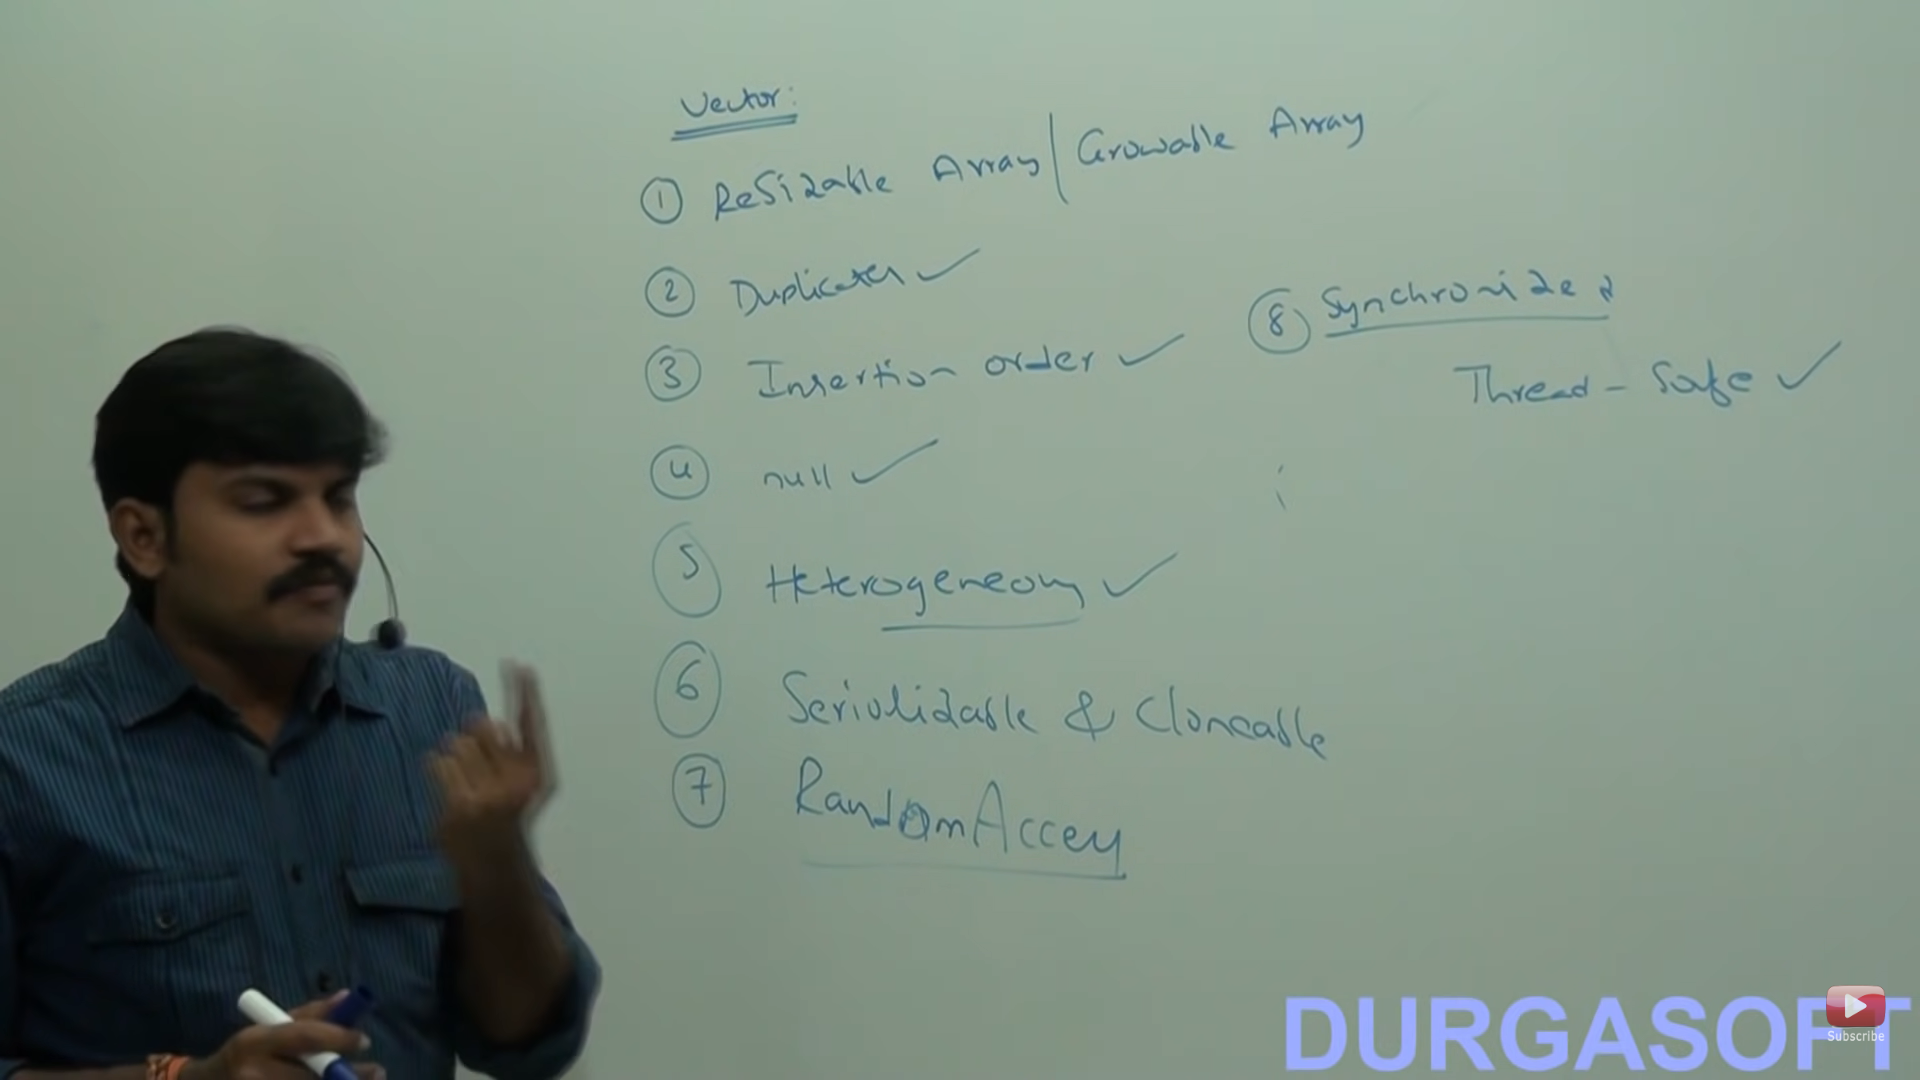 Vector:
① ReSizable Array | Growable Array
② Duplicates ✓
③ Insertion order ✓
④ null ✓
⑤ Heterogeneous ✓
⑥ Serializable & Cloneable
⑦ RandomAccess
⑧ Synchronized
Thread-Safe ✓
DURGASOFT
Subscribe